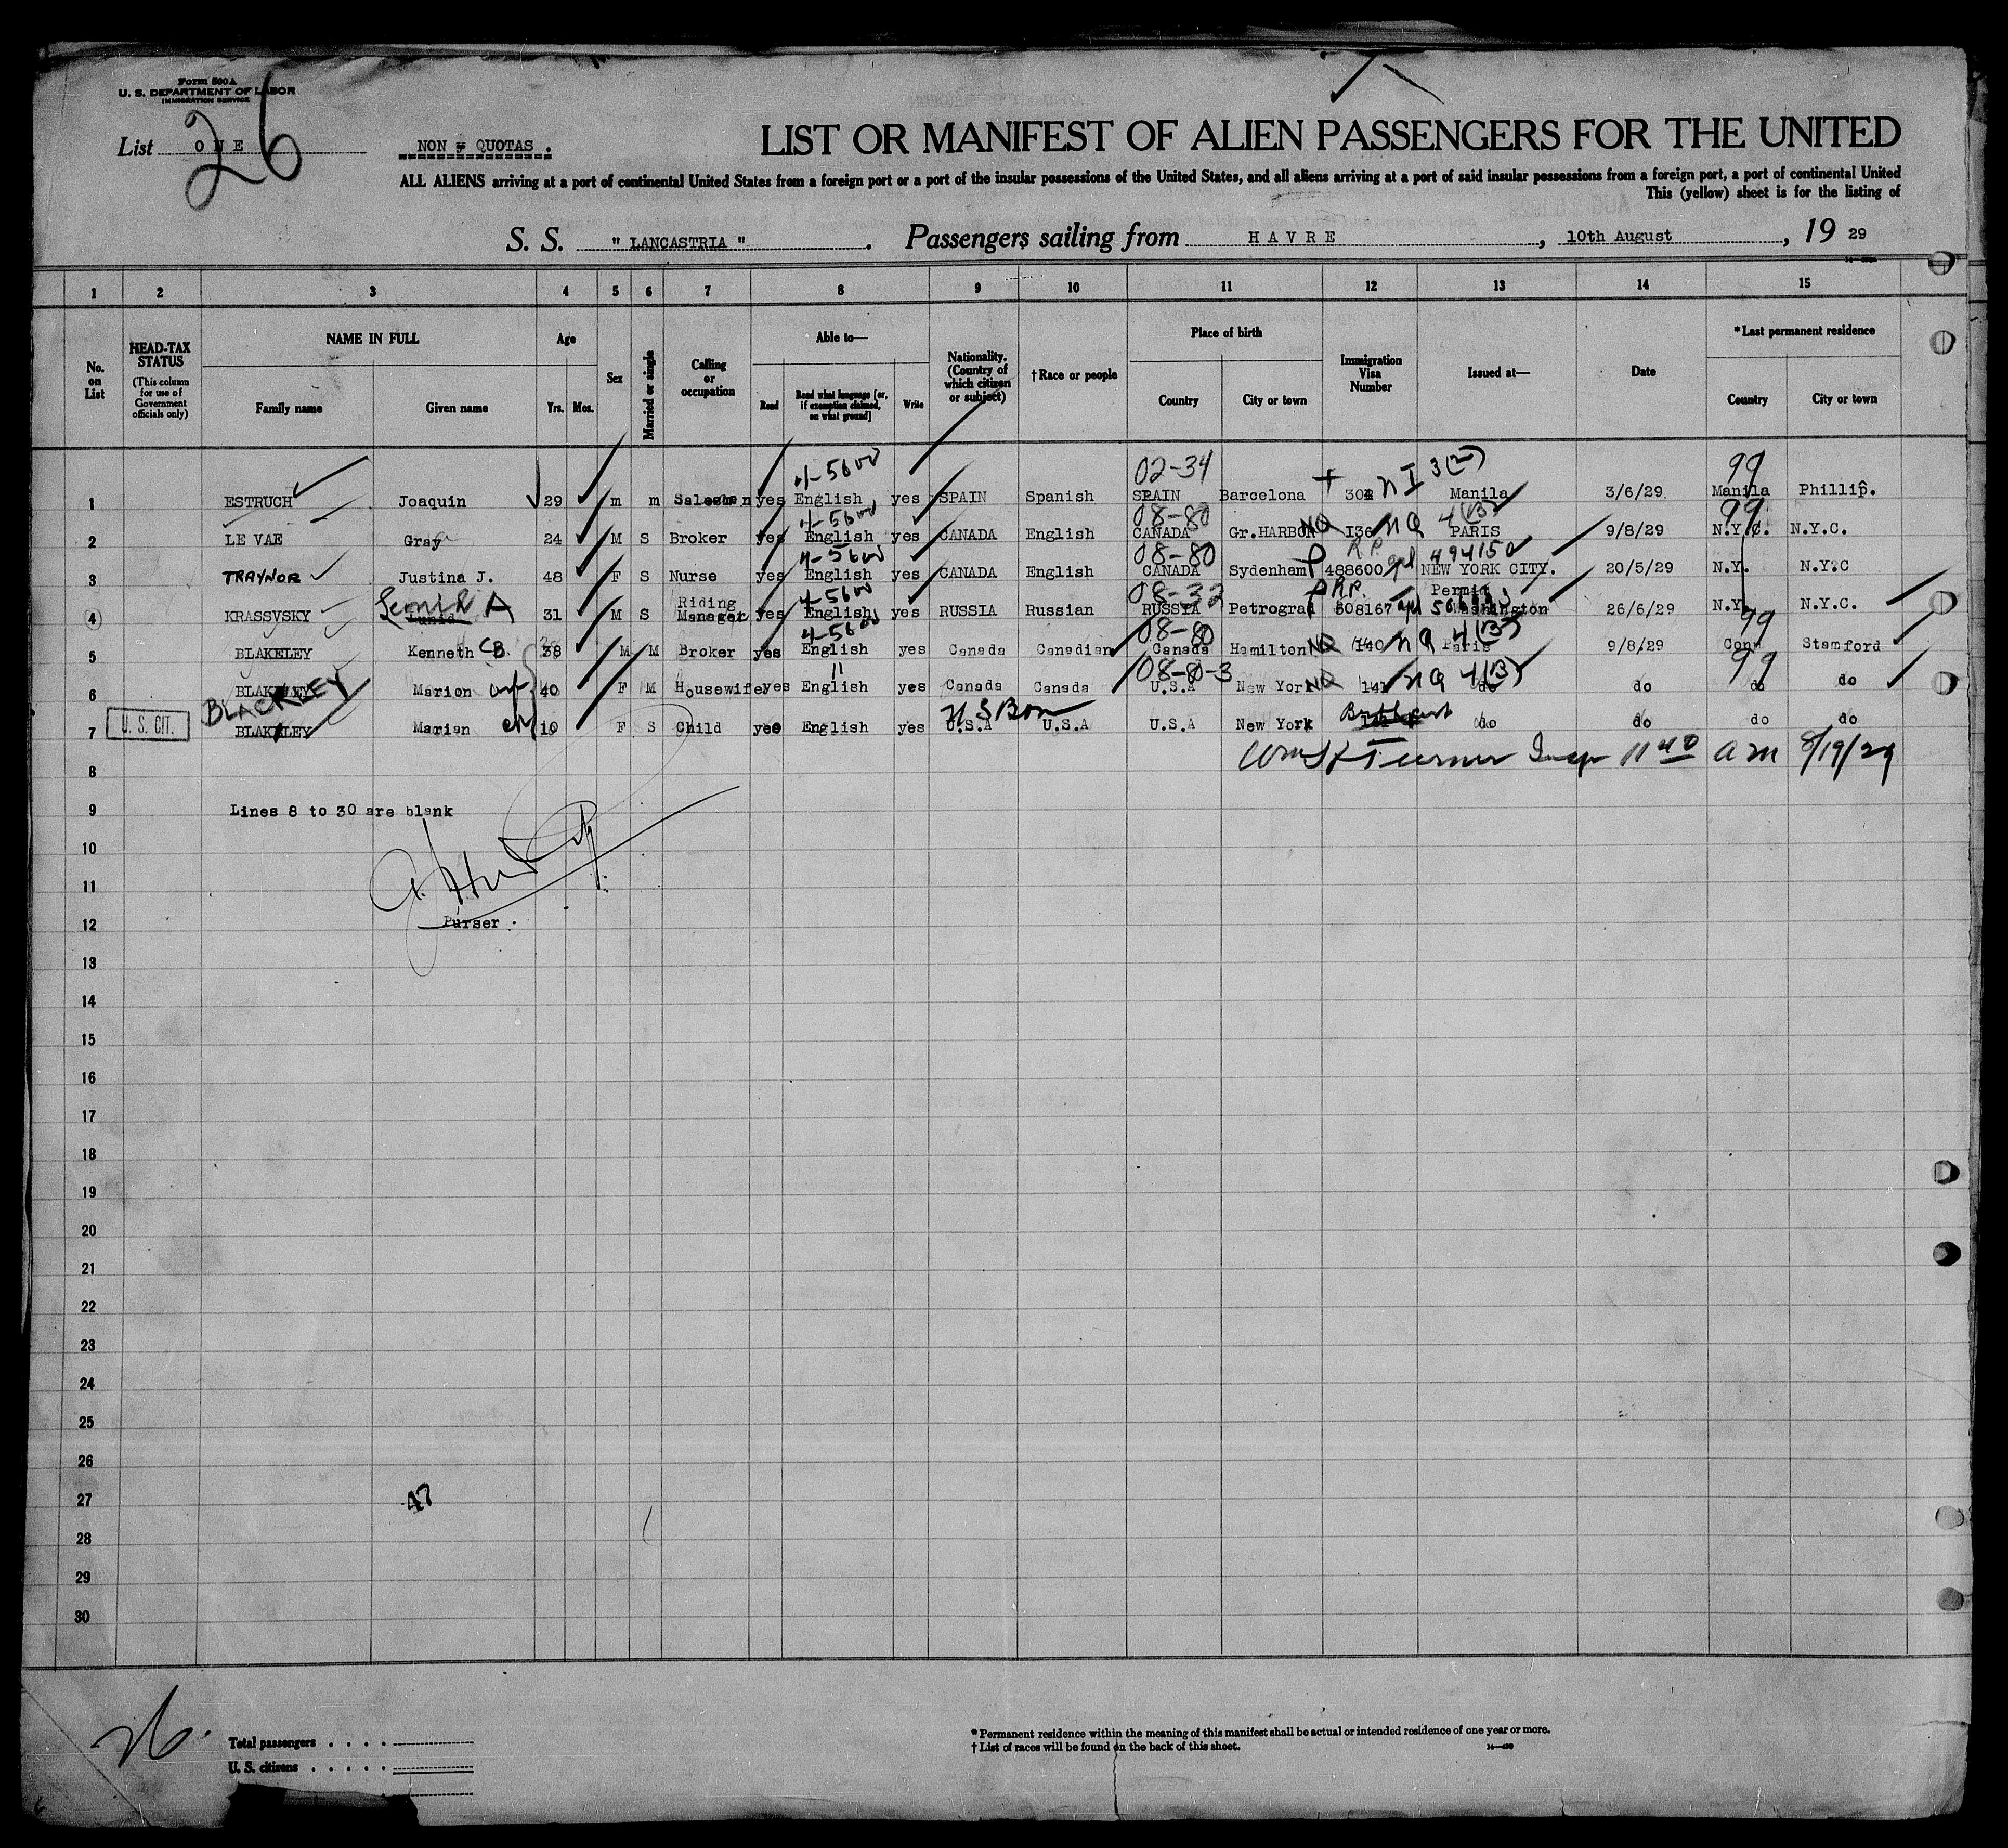 Form 500 A
U. S. DEPARTMENT OF LABOR
IMMIGRATION SERVICE
26
List ONE NON - QUOTAS .
LIST OR MANIFEST OF ALIEN PASSENGERS FOR THE UNITED
ALL ALIENS arriving at a port of continental United States from a foreign port or a port of the insular possessions of the United States, and all aliens arriving at a port of said insular possessions from a foreign port, a port of continental United
This (yellow) sheet is for the listing of
S. S. " LANCASTRIA " . Passengers sailing from HAVRE , 10th August , 19 29
1 2 3 4 5 6 7 8 9 10 11 12 13 14 15
No. on List
HEAD-TAX STATUS (This column for use of Government officials only)
NAME IN FULL Family name Given name
Age Yrs. Mos.
Sex
Married or single
Calling or occupation
Able to— Read Read what language [or, if exemption claimed, on what ground] Write
Nationality. (Country of which citizen or subject)
† Race or people
Place of birth Country City or town
Immigration Visa Number
Issued at—
Date
*Last permanent residence Country City or town
4-5600 02-34 n I 3(2) 99
1 ESTRUCH Joaquin 29 m m Salesman yes English yes SPAIN Spanish SPAIN Barcelona 304 Manila 3/6/29 Manila Phillip.
4-5600 08-80 NQ NQ 4(B) 99
2 LE VAE Gray 24 M S Broker yes English yes CANADA English CANADA Gr.HARBOR I36 PARIS 9/8/29 N.Y.C. N.Y.C.
4-5600 08-80 RP 494150
3 TRAYNOR Justina J. 48 F S Nurse yes English yes CANADA English CANADA Sydenham 488600 NEW YORK CITY. 20/5/29 N.Y. N.Y.C
A 4-5600 08-32 RP. Permit
4 KRASSVSKY 31 M S Riding Manager yes English yes RUSSIA Russian RUSSIA Petrograd 508167 Washington 26/6/29 N.Y. N.Y.C.
4-5600 08-80 NQ NQ 4(B) 99
5 BLAKELEY Kenneth CB 38 M M Broker yes English yes Canada Canadian Canada Hamilton 140 Paris 9/8/29 Conn Stamford
" 08-0-3 NQ NQ 4(B) 99
6 BLAKELEY Marion wf 40 F M Housewife yes English yes Canada Canada U.S.A New York 141 do do do do
BLACKLEY U S Born
7 U. S. CIT. BLAKELEY Marian 10 F S Child yes English yes U.S.A U.S.A U.S.A New York do do do do
8 Wm Turner Insp 11 40 am 8/19/29
9 Lines 8 to 30 are blank
10
11
12 Purser .
13
14
15
16
17
18
19
20
21
22
23
24
25
26
27 47
28
29
30
26.
Total passengers . . . .
U. S. citizens . . . . .
* Permanent residence within the meaning of this manifest shall be actual or intended residence of one year or more.
† List of races will be found on the back of this sheet.